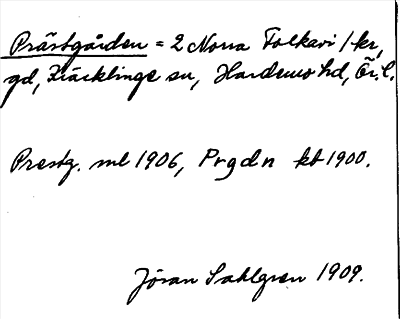 Prästgården = 2 Norra Folkavi 1 kr,
gd, Kräcklinge sn, Hardemo hd, Ör. l.
Prestg. ml 1906, Prgdn kb 1900.
Jöran Sahlgren 1909.